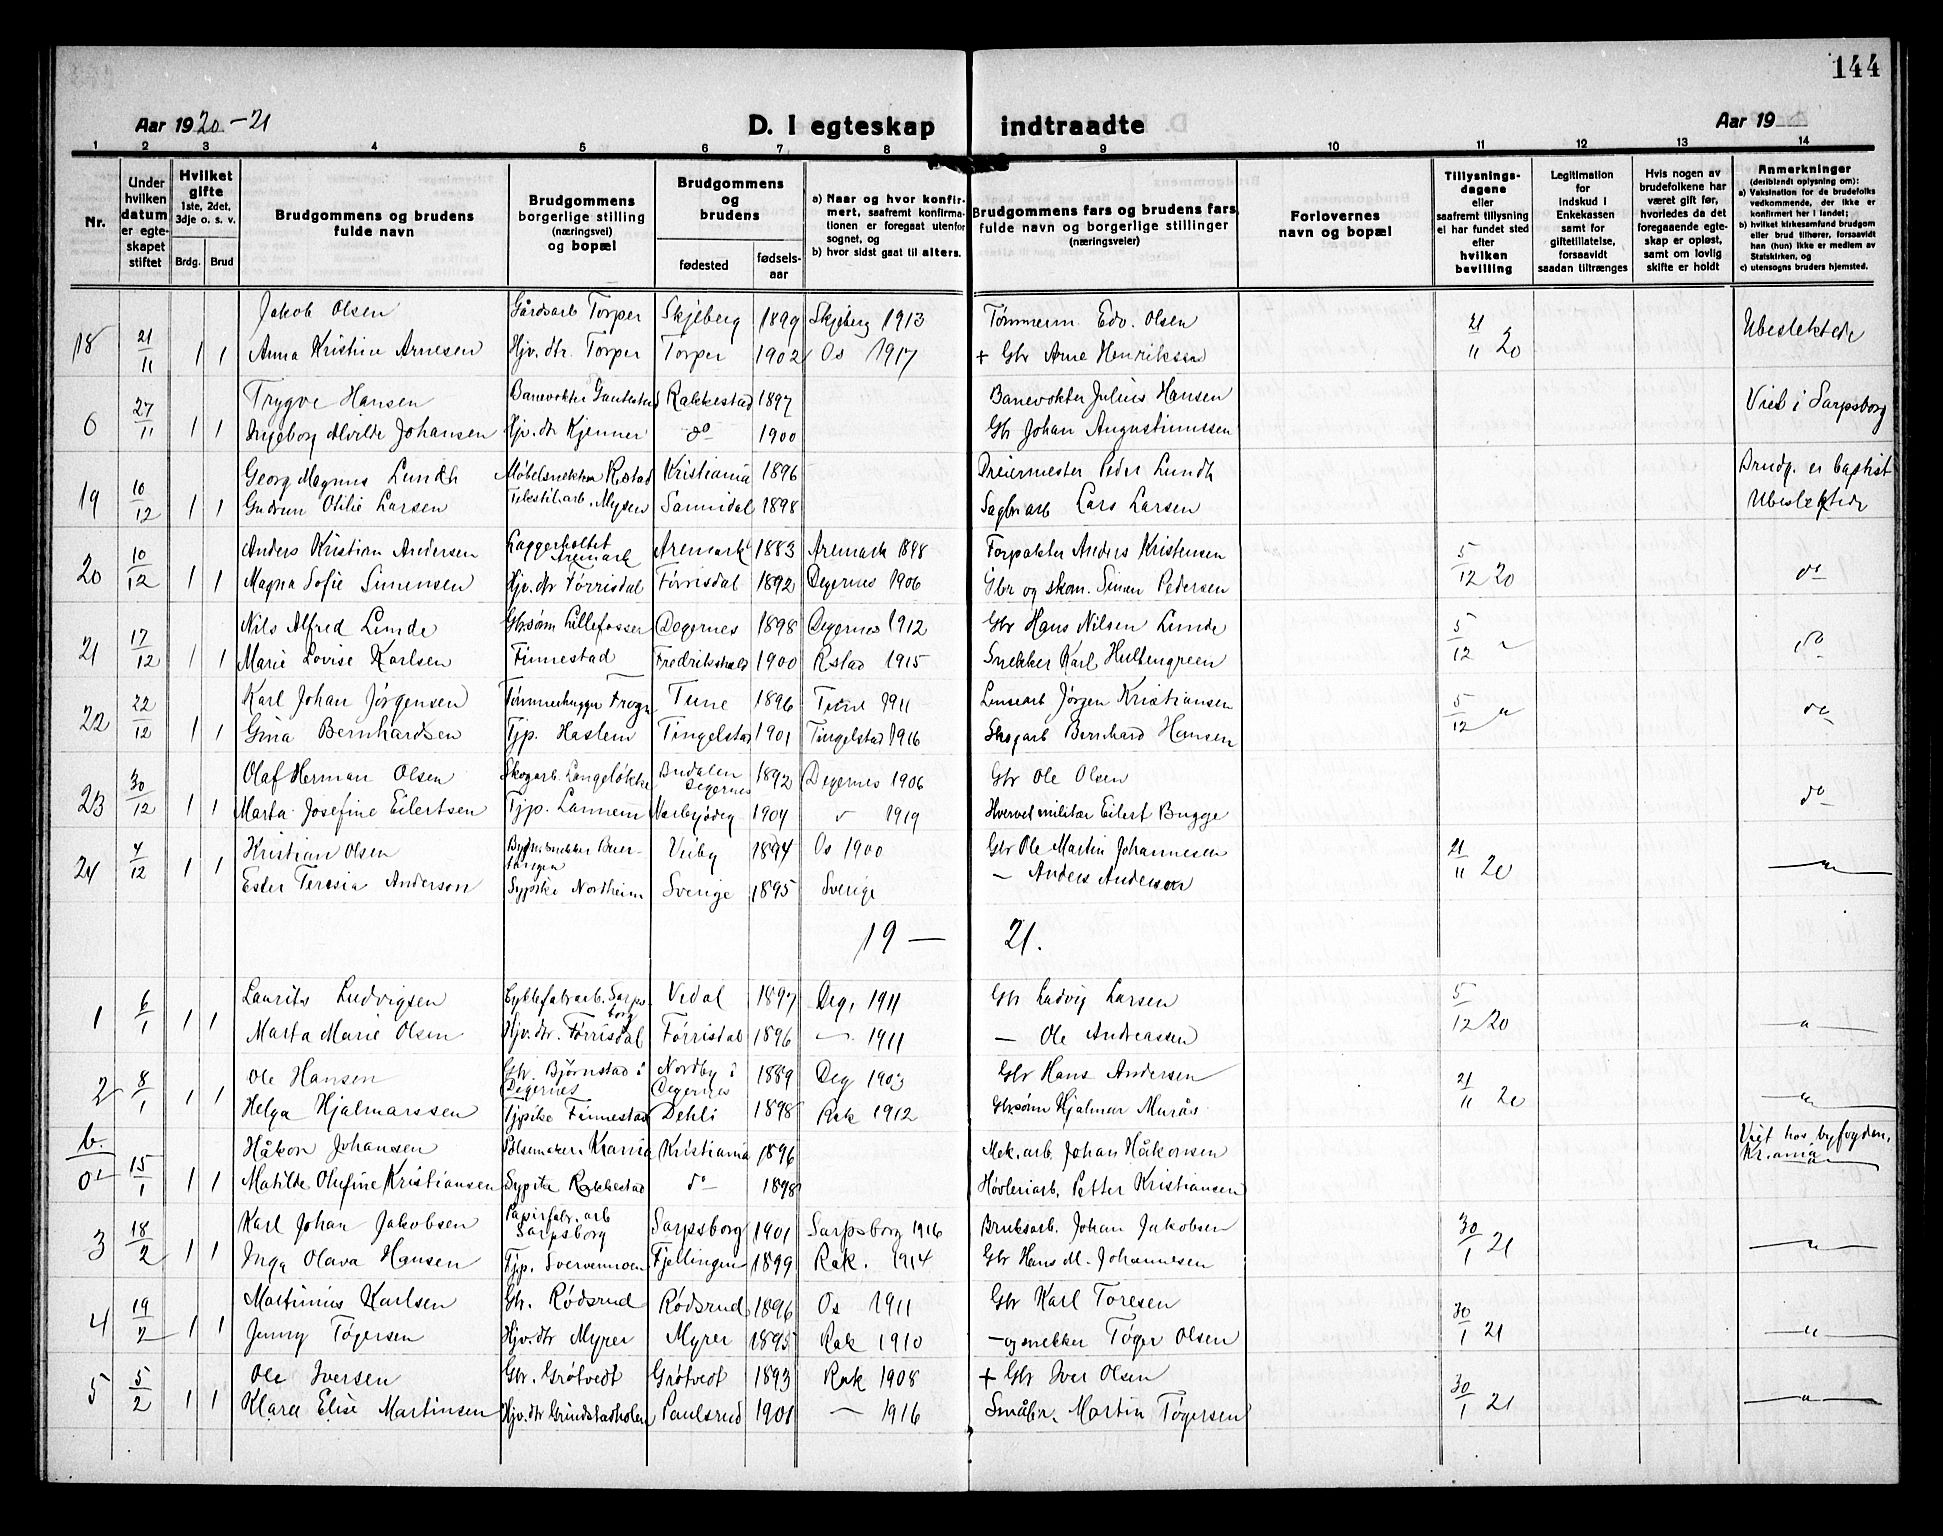 144
Aar 1920-21
D. I egteskap indtraadte
Aar 19
1 2 3 4 5 6 7 8 9 10 11 12 13 14
Nr.
Under hvilken datum er egteskapet stiftet
Hvilket gifte
1ste, 2det, 3dje o. s. v.
Brdg. Brud
Brudgommens og brudens fulde navn
Brudgommens borgerlige stilling (næringsvei) og bopæl
Brudgommens og brudens
fødested
fødselsaar
a) Naar og hvor konfirmert, saafremt konfirmationen er foregaat utenfor sognet, og
b) hvor sidst gaat til alters.
Brudgommens fars og brudens fars fulde navn og borgerlige stillinger (næringsveier)
Forlovernes navn og bopæl
Tillysningsdagene eller saafremt tillysning ei har fundet sted efter hvilken bevilling
Legitimation for Indskud i Enkekassen samt for giftetillatelse, forsaavidt saadan tiltrænges
Hvis nogen av brudefolkene har været gift før, hvorledes da det foregaaende egteskap er opløst, samt om lovlig skifte er holdt
Anmerkninger (deriblandt oplysning om):
a) Vaksination for de brudefolks vedkommende, der ikke er konfirmert her i landet;
b) hvilket kirkesamfund brudgom eller brud tilhører, forsaavidt han (hun) ikke er medlem av Statskirken, og
c) utensogns bruders hjemsted.
Jakob Olsen Gårdsarb Torper Skjeberg 1899 Skjeberg 1913 Tømmerm Edv. Olsen
18 21/11 1 1 Anna Kristine Arnesen Hjv. dtr. Torper Torper 1902 Os 1917 + Gbr Arne Henriksen 21/11 20 Ubeslektede
Trygve Hansen Banevokter Rakkestad 1897 Banevokter Julius Hansen
6 27/11 1 1 Ingeborg Alvilde Johansen Hjv. dtr Kjenner do 1900 Gbr Johan Augustinussen Viet i Sarpsborg
Georg Magnus Lundh Møbelsnekker Kristiania 1896 Dreiermester Peder Lundh Brudg. er baptist
19 10/12 1 1 Gudrun Otilie Larsen Tekstilarb. Mysen Sannidal 1898 Sagbr arb Lars Larsen Ubeslektede
Anders Kristian Andersen Laggerholtet Aremark Aremark 1883 Aremark 1898 Forpakter Anders Kristensen
20 10/12 1 1 Magna Sofie Simensen Hjv. dtr Tørrisdal Tørrisdal 1892 Degernes 1906 Gbr og skom. Simen Pedersen 5/12 20 do
Nils Alfred Lunde Gbr.sønn Lillefosser Degernes 1898 Degernes 1912 Gbr Hans Nilsen Lunde
21 17/12 1 1 Marie Lovise Karlsen Finnestad Fredrikshald 1900 Rstad 1915 Snekker Karl Hultengreen 5/12 " do
Karl Johan Jørgensen Tømmerhugger Frogn Tune 1896 Tune 1911 Lensearb Jørgen Kristiansen
22 22/12 1 1 Gina Bernhardsen Tjp. Haslem Tingelstad 1901 Tingelstad 1916 Skogarb Bernhard Hansen 5/12 " do
Olaf Herman Olsen Skogarb. Langeløkke Budalen Degernes 1892 Degernes 1906 Gbr Ole Olsen
23 30/12 1 1 Marta Josefine Eilertsen Tjp. Lannem 1904 " 1919 Hvervet militær Eilert Bugge do
Kristian Olsen Veiby 1894 Os 1900 Gbr Ole Martin Johannesen
24 7/12 1 1 Ester Teresia Anderson Sypike Northeim Sverige 1895 Sverige — Anders Anderson 21/11 20 — " —
19 — 21.
Laurits Ludvigsen Cyklefabr arb. Sarpsborg Vedal 1897 Deg. 1911 Gbr Ludvig Larsen
1 6/1 1 1 Marta Marie Olsen Hjv. dtr. Tørrisdal Tørrisdal 1896 — 1911 — Ole Andreassen 5/12 20 — " —
Ole Hansen Gbr. Bjørnstad i Degernes Nordby i Degernes 1889 Deg 1903 Gbr Hans Andersen
2 8/1 1 1 Helga Hjalmarssen Tjpike Finnestad Dehli 1898 Rak 1912 Gbr.sønn Hjalmar Murås 21/11 20 — " —
b. Håkon Johansen Pølsemaker Krania Kristiania 1896 Mek. arb. Johan Håkonsen Viet hos byfogden, Kr.ania
15/1 1 1 Matilde Olufine Kristiansen Sypike Rakkestad do 1898 Høvleriarb. Petter Kristiansen
Karl Johan Jakobsen Papirfabr. arb Sarpsborg Sarpsborg 1901 Sarpsborg 1916 Bruksarb. Johan Jakobsen
3 18/2 1 1 Inga Olava Hansen Tjp. Svervemoen Fjellingen 1899 Rak. 1914 Gbr Hans M. Johannesen 30/1 21 — " —
Martinius Karlsen Gbr. Rødsrud Rødsrud 1896 Os 1911 Gbr Karl Toresen
4 19/2 1 1 Jenny Tøgersen Hjv. dtr Myrer Myrer 1895 Rak 1910 — og snekker Tøger Olsen 30/1 21 — " —
Ole Iversen Gbr. Grøtvedt Grøtvedt 1893 Rak 1908 + Gbr Iver Olsen
5 5/2 1 1 Klara Elise Martinsen Hjv. dtr Grindstadholen Paulsrud 1901 — 1916 Småbr. Martin Tøgersen 30/1 21 — " —